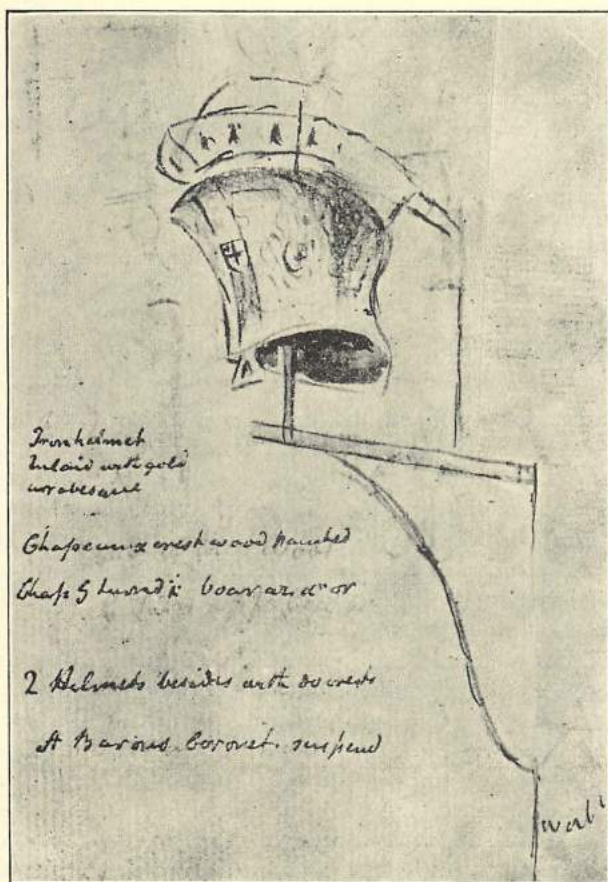 Iron helmet
Inlaid with gold
arabesque
Chapeau & crest wood painted
Chap G turned
boar az or
2 Helmets besides with do crests
A Barons Coronet suspend
wall